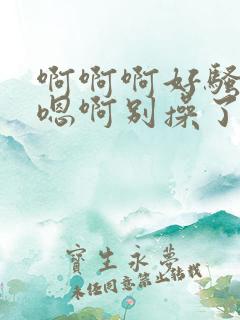 啊啊啊好骚
嗯啊别操了
寶生永夢
未经同意禁止转载